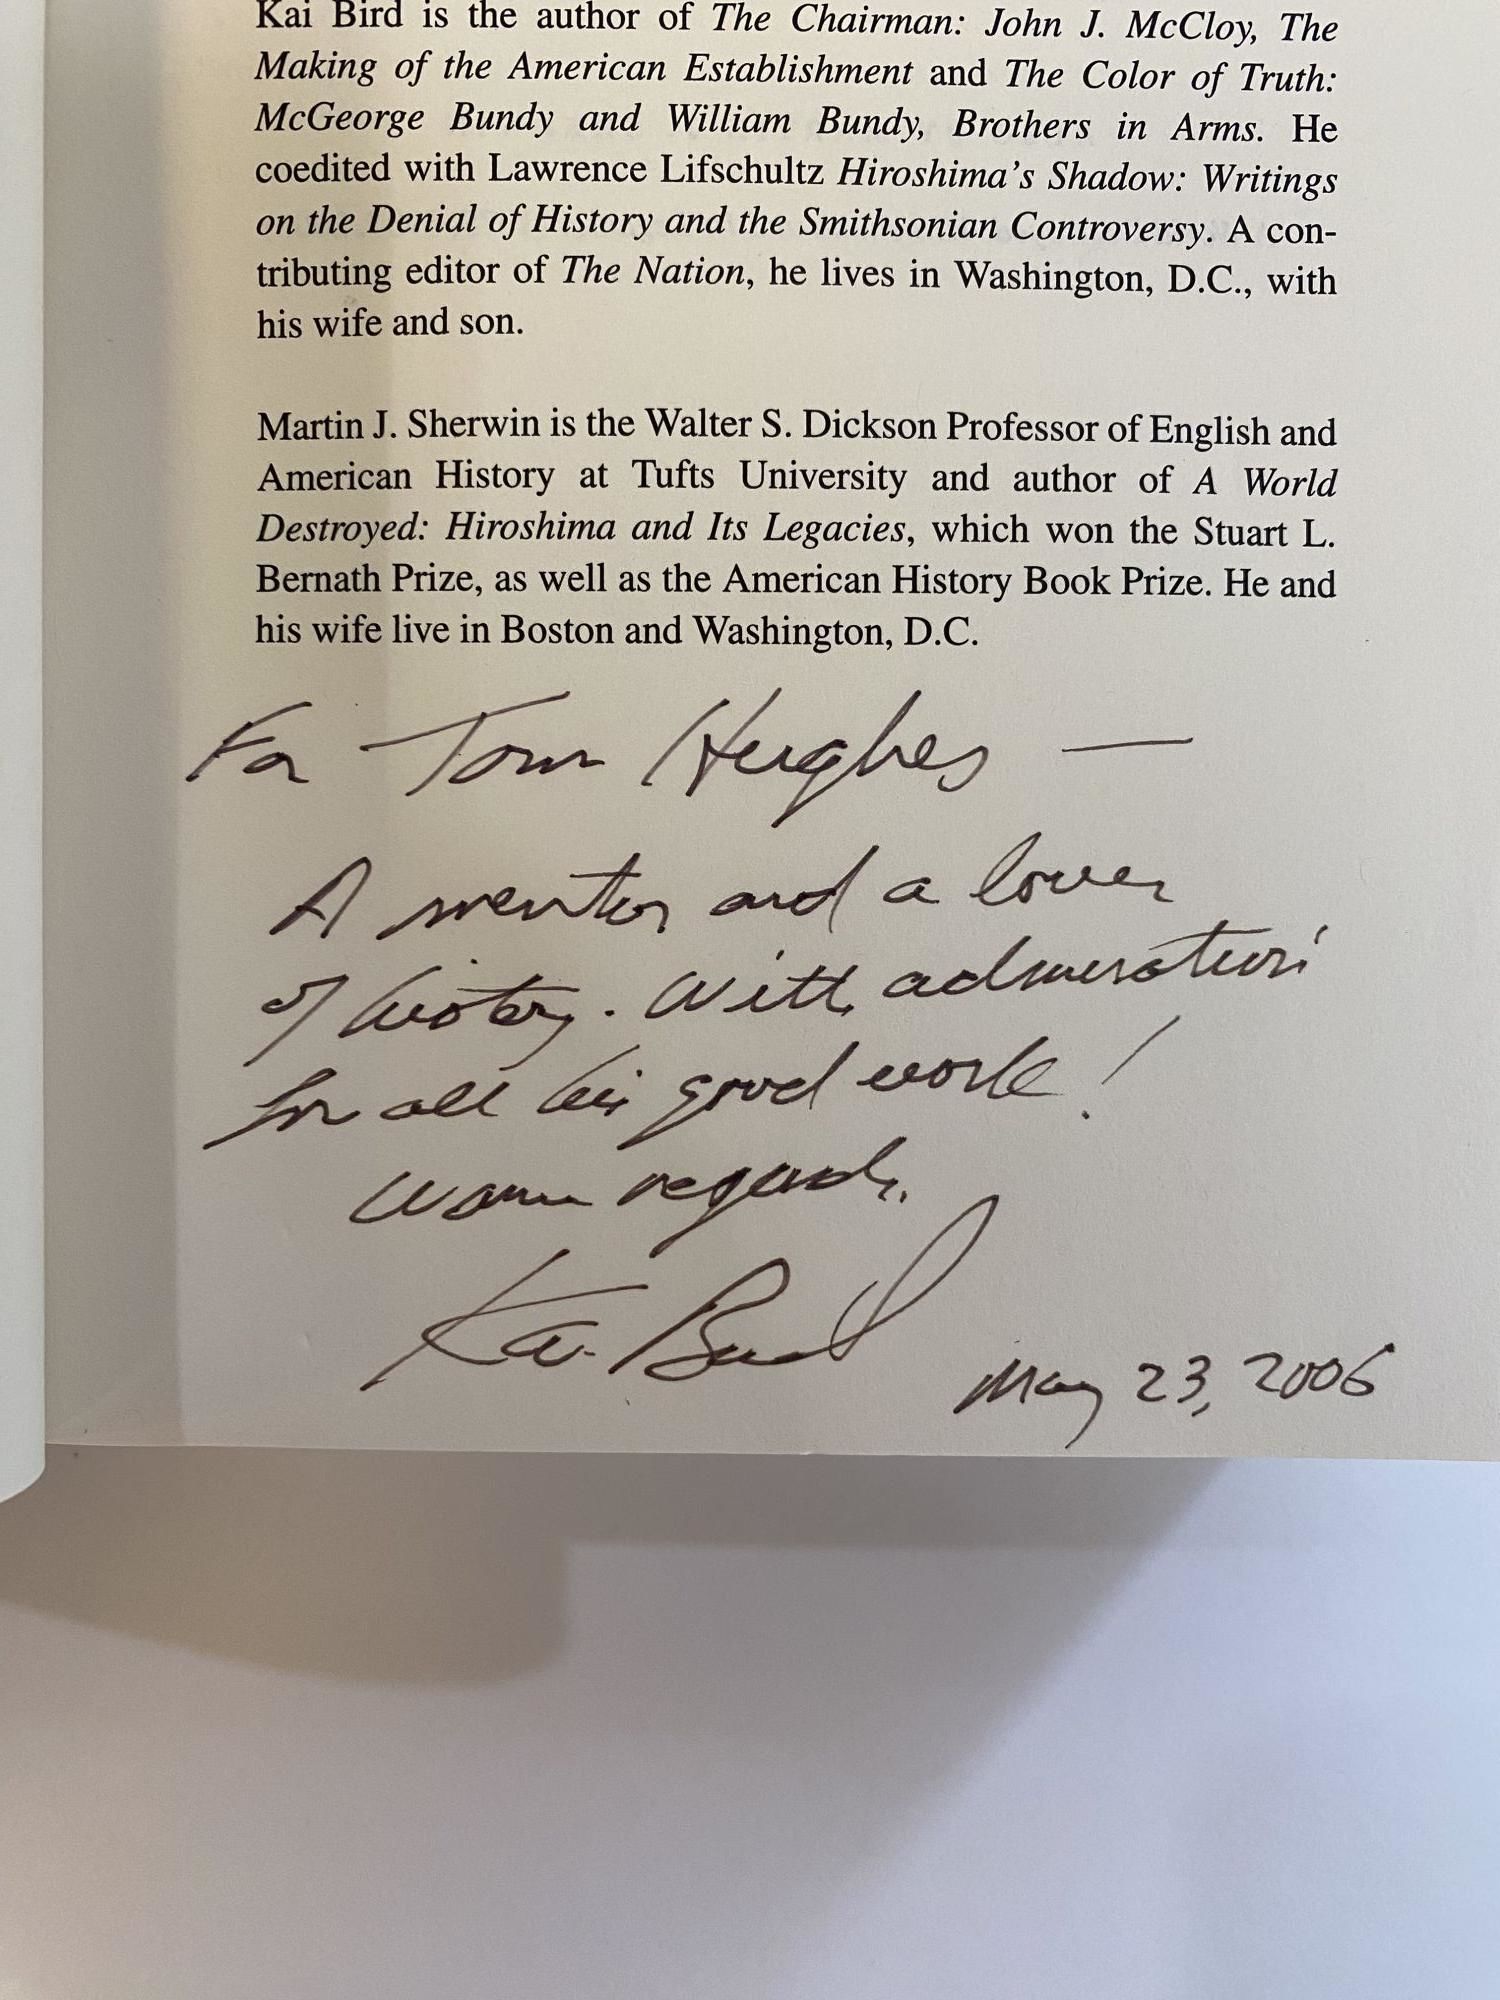 Kai Bird is the author of The Chairman: John J. McCloy, The
Making of the American Establishment and The Color of Truth:
McGeorge Bundy and William Bundy, Brothers in Arms. He
coedited with Lawrence Lifschultz Hiroshima's Shadow: Writings
on the Denial of History and the Smithsonian Controversy. A con-
tributing editor of The Nation, he lives in Washington, D.C., with
his wife and son.
Martin J. Sherwin is the Walter S. Dickson Professor of English and
American History at Tufts University and author of A World
Destroyed: Hiroshima and Its Legacies, which won the Stuart L.
Bernath Prize, as well as the American History Book Prize. He and
his wife live in Boston and Washington, D.C.
For Tom Hughes —
A mentor and a lover
of history. With admiration
for all his good work!
Warm regards,
Kai Bird
May 23, 2006